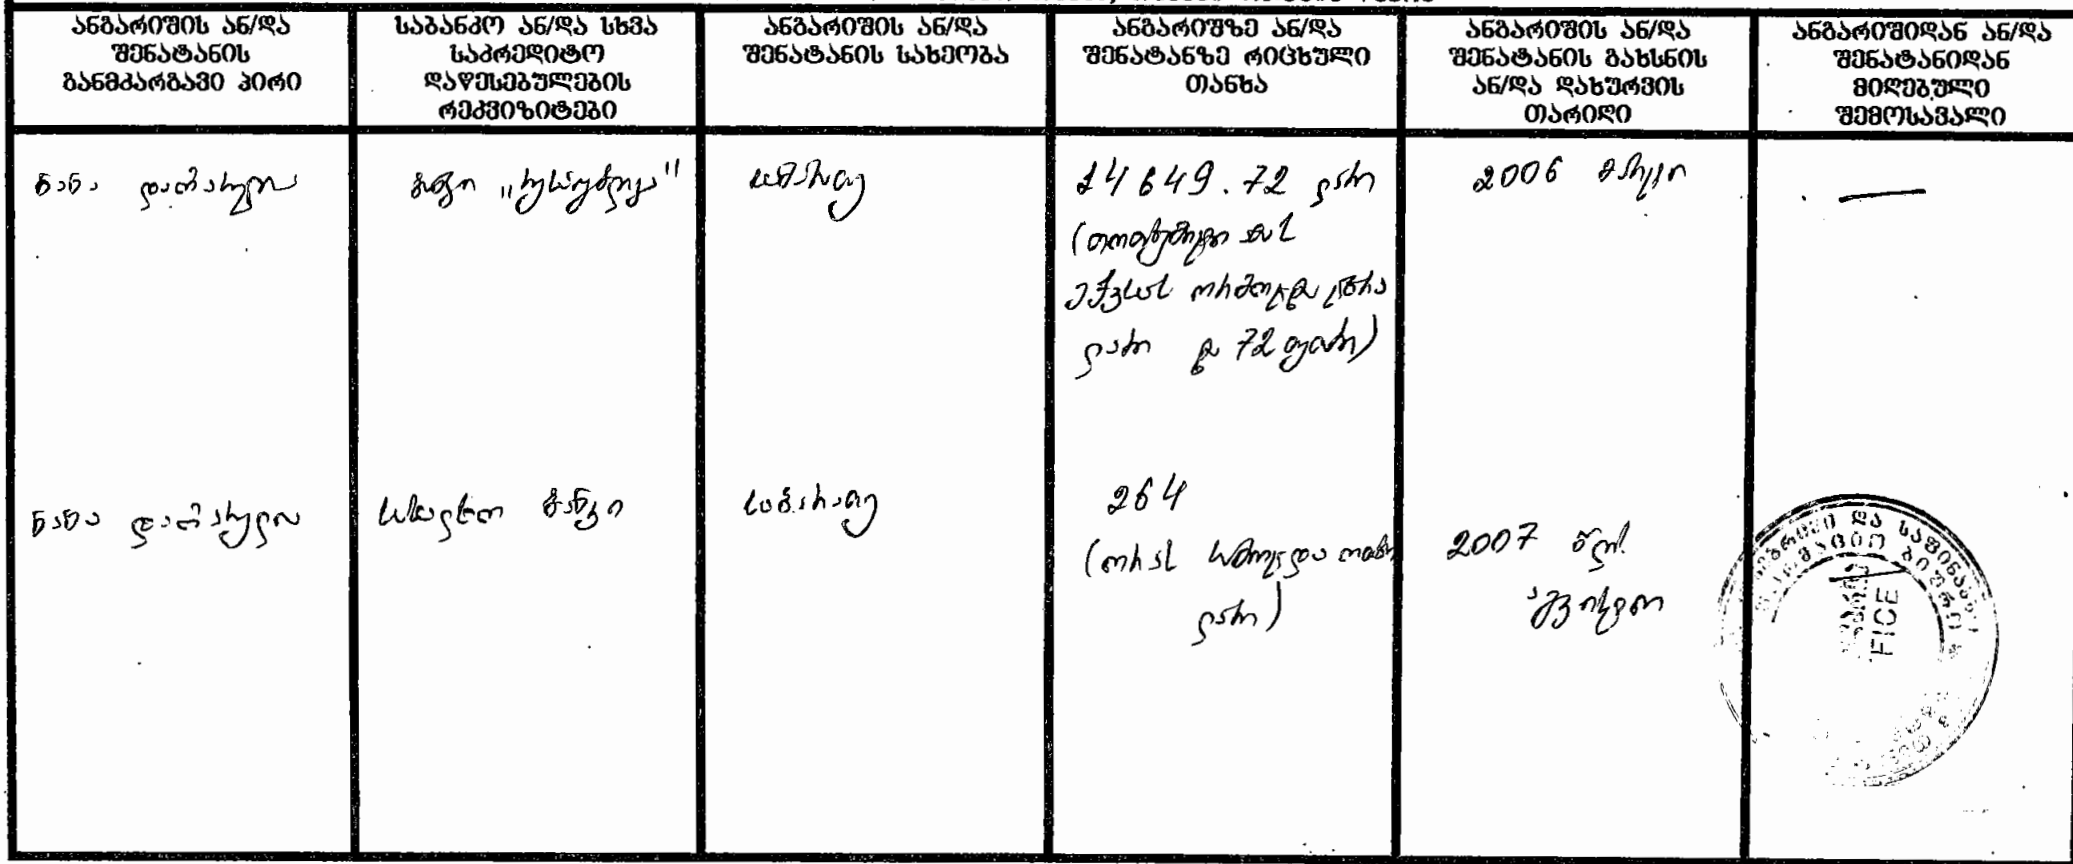 ანგარიშის ან/და
შენატანის
განმკარგავი პირი
საბანკო ან/და სხვა
საკრედიტო
დაწესებულების
რეკვიზიტები
ანგარიშის ან/და
შენატანის სახეობა
ანგარიშზე ან/და
შენატანზე რიცხული
თანხა
ანგარიშის ან/და
შენატანის გახსნის
ან/და დახურვის
თარიღი
ანგარიშიდან ან/და
შენატანიდან
მიღებული
შემოსავალი
ნანა
საბარათე
14649.72 ლარი
(თოთხმეტი ათას
ექვსას ორმოცდა ცხრა
ლარი და 72 თეთრი)
2006 მარტი
ნანა
სახალხო ბანკი
საბარათე
264
(ორას სამოცდა ოთხი
ლარი)
2007 წლ.
აგვისტო
და საფინანსო
ბიურო
FICE